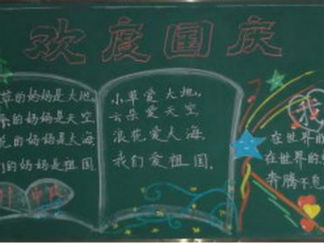 欢度国庆
草的妈妈是大地。
的妈妈是天空
花的妈妈是大海
们的妈妈是祖国
小草爱大地。
云朵爱天空
浪花爱大海
我们爱祖国。
我
在世界的
在世界的
奔腾不息